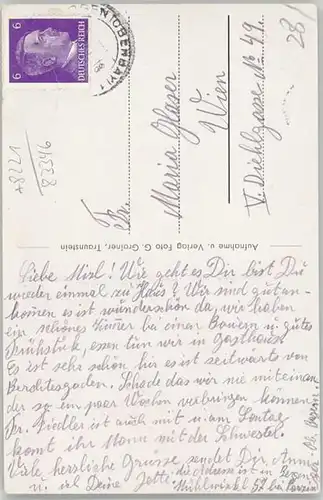 6
6
DEUTSCHES REICH
(OBERBAY.)
28
+8221
83346
Maria Glaser
Wien
V. Diehlgasse No 49.
Aufnahme u. Verlag Foto G. Greiner, Traunstein
Liebe Mizl! Wie geht es Dir bist Du
wieder einmal zu Haus? Wir sind gut an-
kommen es ist wunderschön da, wir haben
ein schönes Zimmer bei einer Bauern u. gutes
Frühstück, essen tun wir in Gasthaus
Es ist sehr schön hir es ist seitwärts von
Berchtesgaden. Schade das wir nie miteinan
der so ein paar Wochen verbringen können.
Fr. Fiedler ist auch mit u. am Sontag
komt ihr Mann mit der Schwester.
Viele herzliche Grüsse sendet Dir Anna
u. Deine